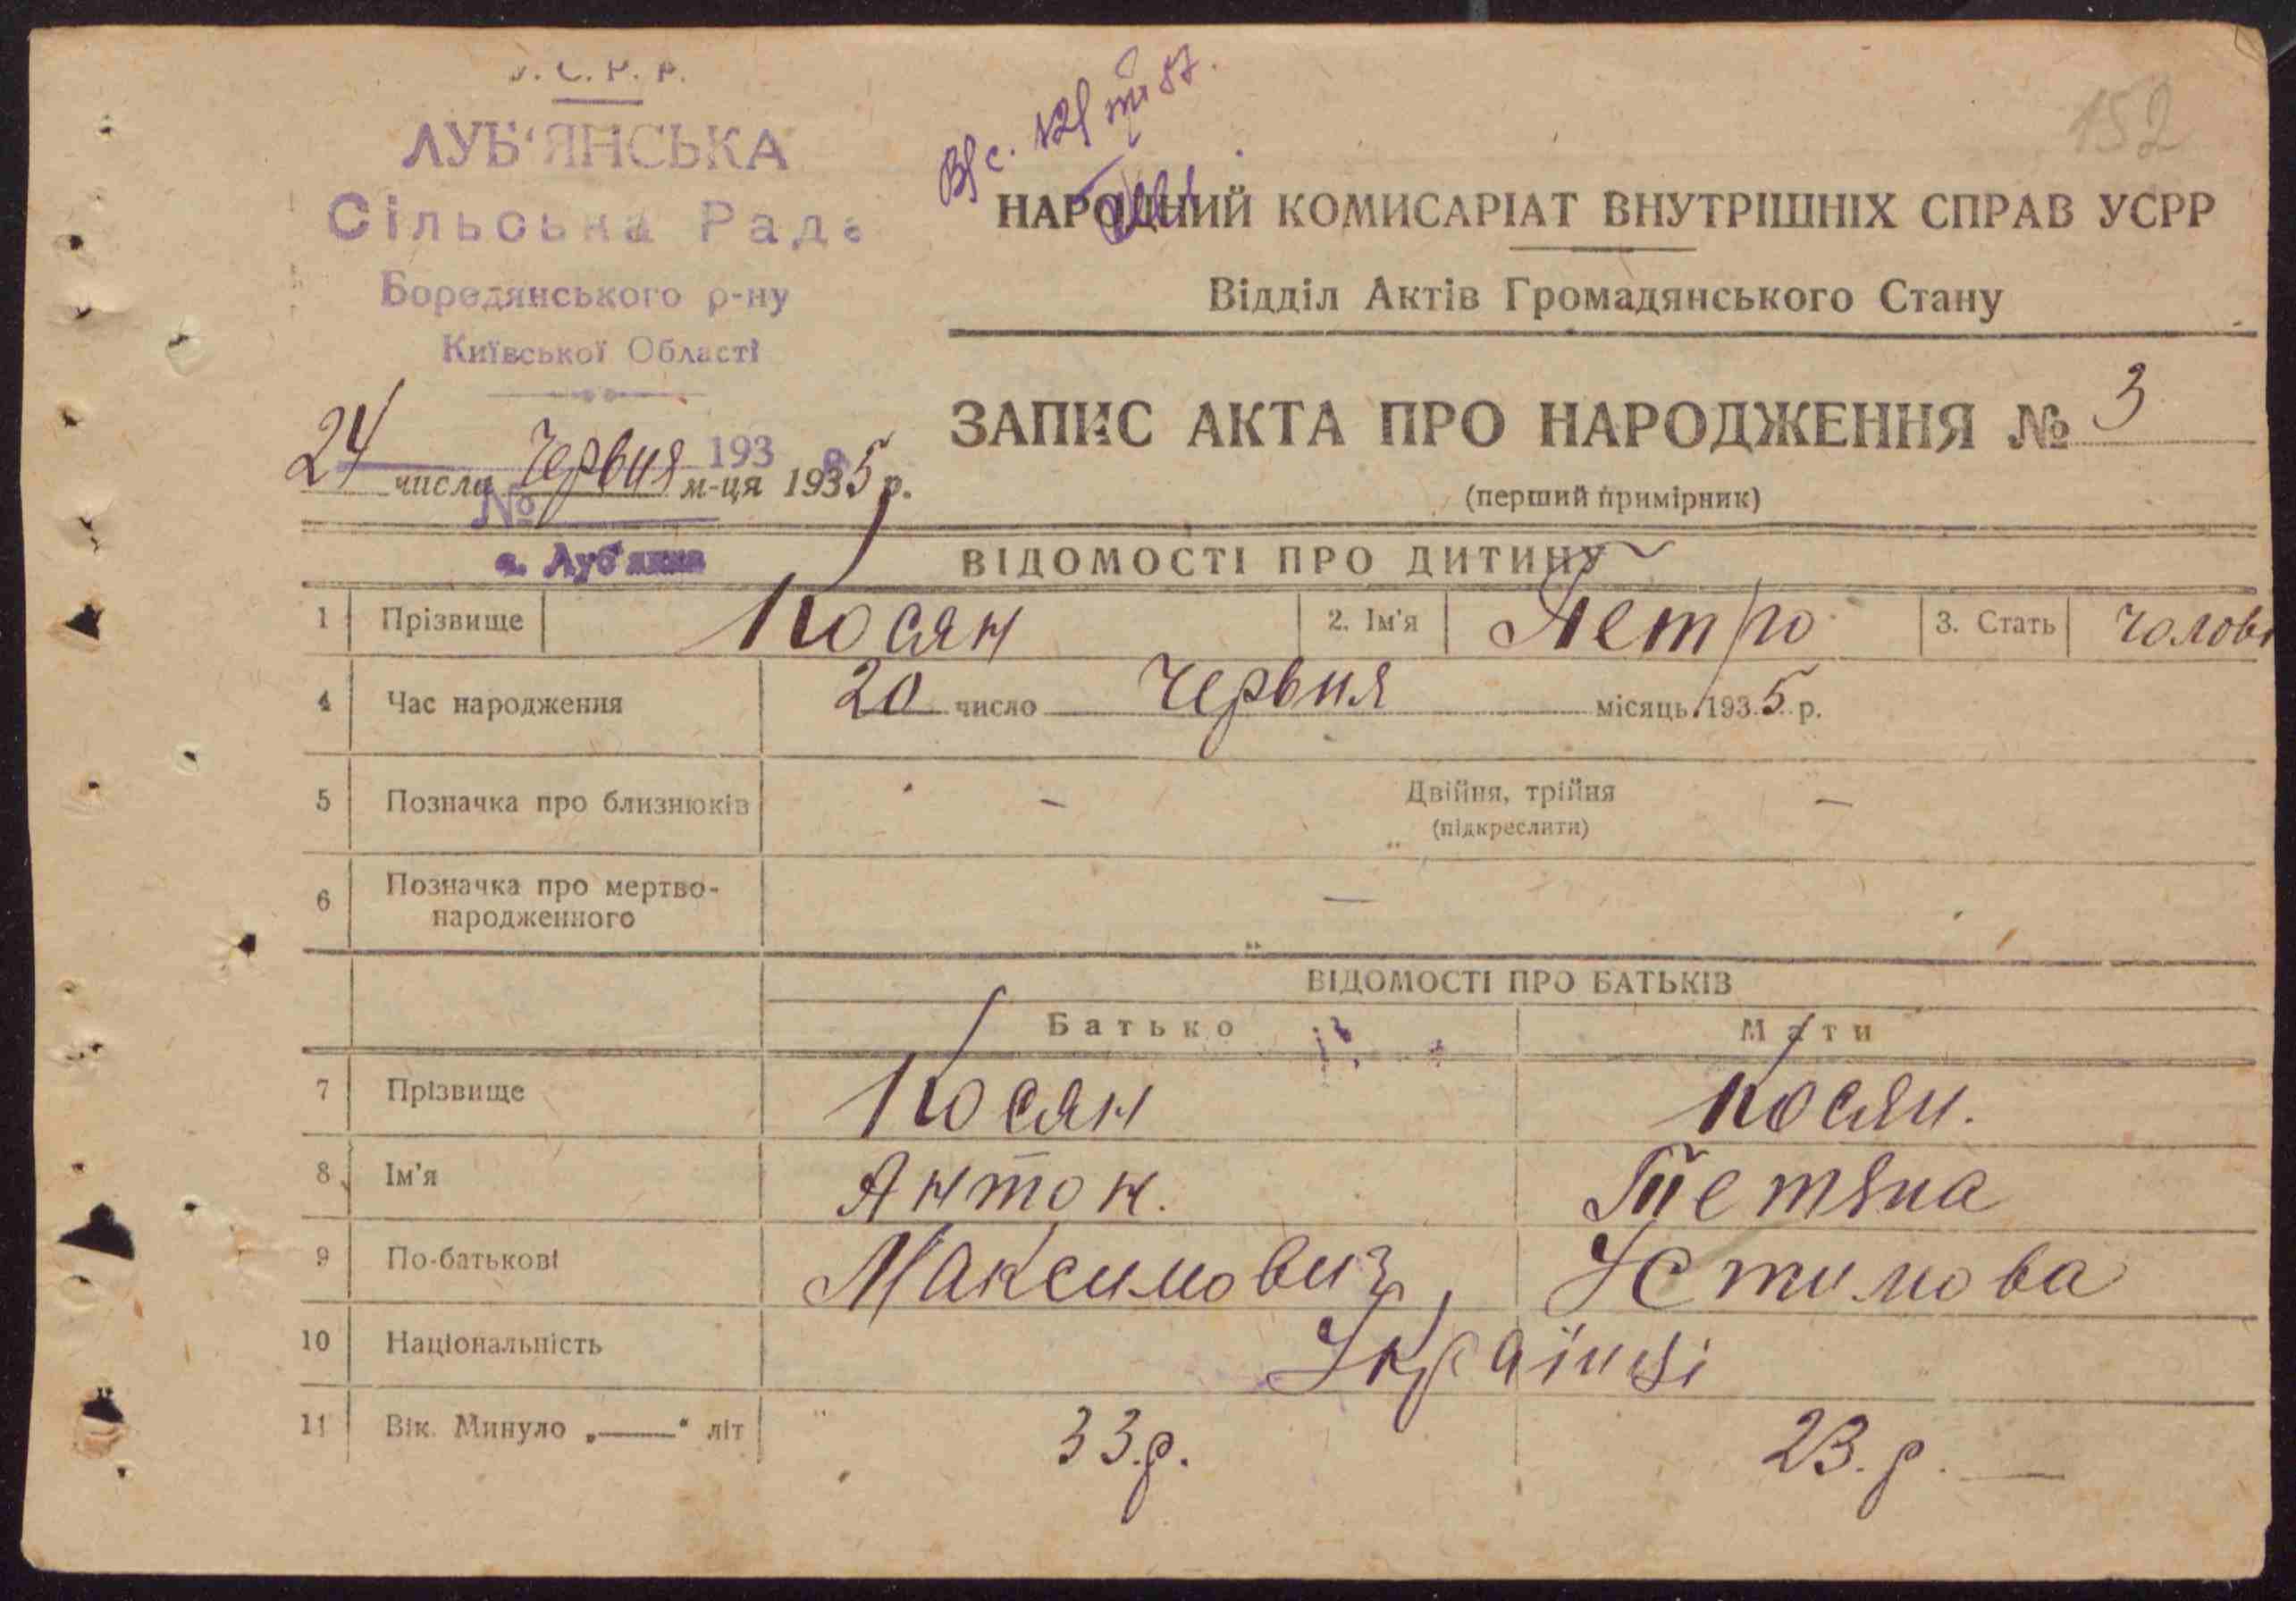 У. С. Р. Р.
ЛУБ'ЯНСЬКА
Сільська Рада
Бородянського р-ну
Київської Області
152
НАРОДНИЙ КОМИСАРІАТ ВНУТРІШНІХ СПРАВ УСРР
Відділ Актів Громадянського Стану
ЗАПИС АКТА ПРО НАРОДЖЕННЯ № 3
(перший примірник)
193
24 числа Червня м-ця 1935 р.
№
с. Луб'янка
ВІДОМОСТІ ПРО ДИТИНУ
1 Прізвище Косян 2. Ім'я Петро 3. Стать Чолові
4 Час народження 20 число Червня місяць 1935 р.
5 Позначка про близнюків – Двійня, трійня –
(підкреслити)
6 Позначка про мертво-
народженного –
ВІДОМОСТІ ПРО БАТЬКІВ
Батько Мати
7 Прізвище Косян Косян.
8 Ім'я Антон. Тетяна
9 По-батькові Максимович Устимова
10 Національність Українці
11 Вік. Минуло „——“ літ 33.р. 23.р. —